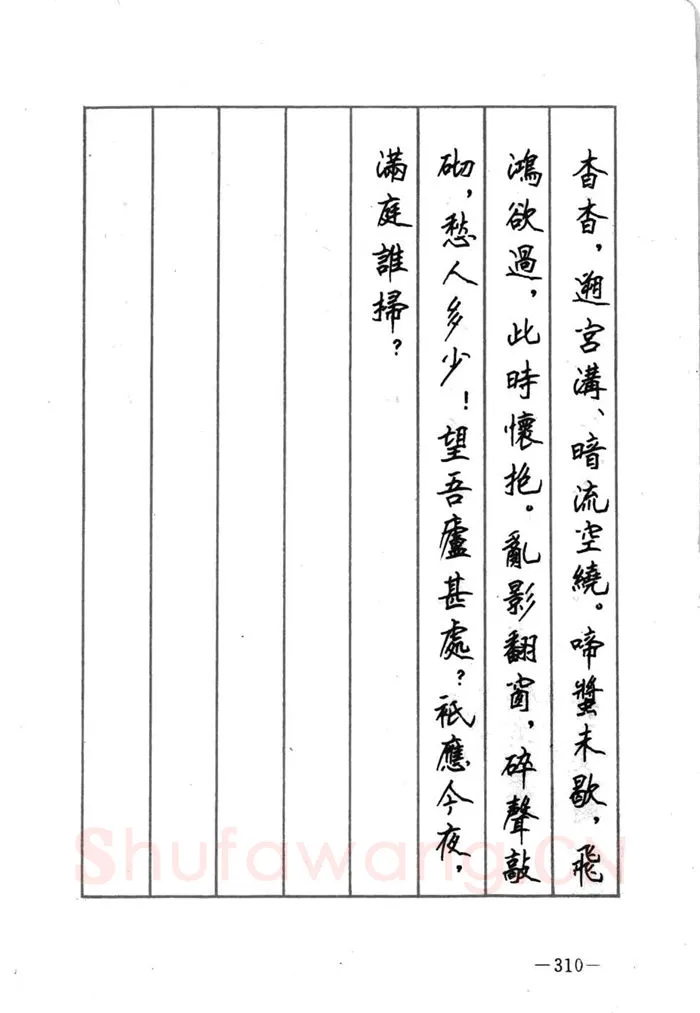 杳杳，遡宮溝、暗流空繞。啼螿未歇，飛
鴻欲過，此時懷抱。亂影翻窗，碎聲敲
砌，愁人多少！望吾廬甚處？祇應今夜，
滿庭誰掃？
Shufawang.CN
—310—